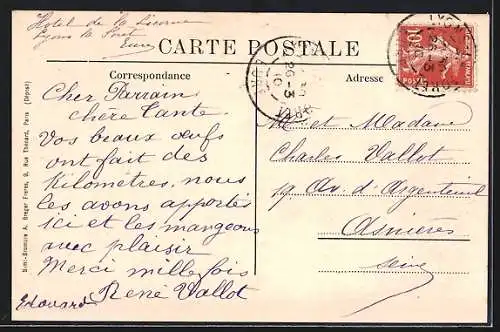 Hotel de la Licorne
Lyons la Foret
Eure
CARTE POSTALE
Correspondance
Adresse
Cher Parrain
chere Tante.
Vos beaux œufs
ont fait des
Kilomètres, nous
les avons apportés
ici et les mangeons
avec plaisir
Merci mille fois
René Vallot
Edouard
M et Madame
Charles Vallot
19 Av. d'Argenteuil
Asnières
Seine
Simi-Bromure A. Breger Frères, 9, Rue Thénard, Paris (Déposé)
LYONS
26-3
10
EURE
10
POSTES
LYONS
26-3
10